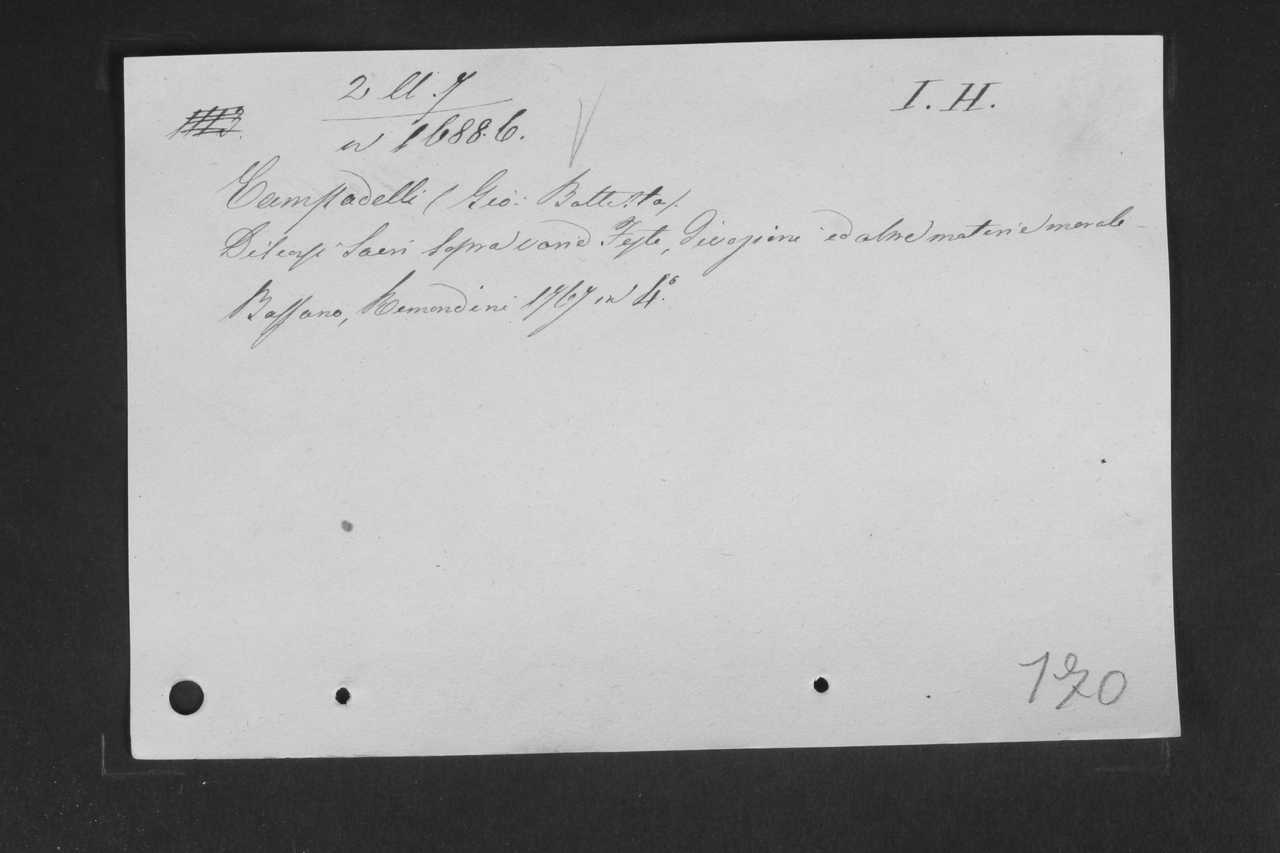 I. H.
1688.6.
Campadelli (Gio: Battista).
Discorsi Sacri sopra varie Feste, divozioni ed altre materie morale
Bassano, Remondini 1767 in 4.°
170